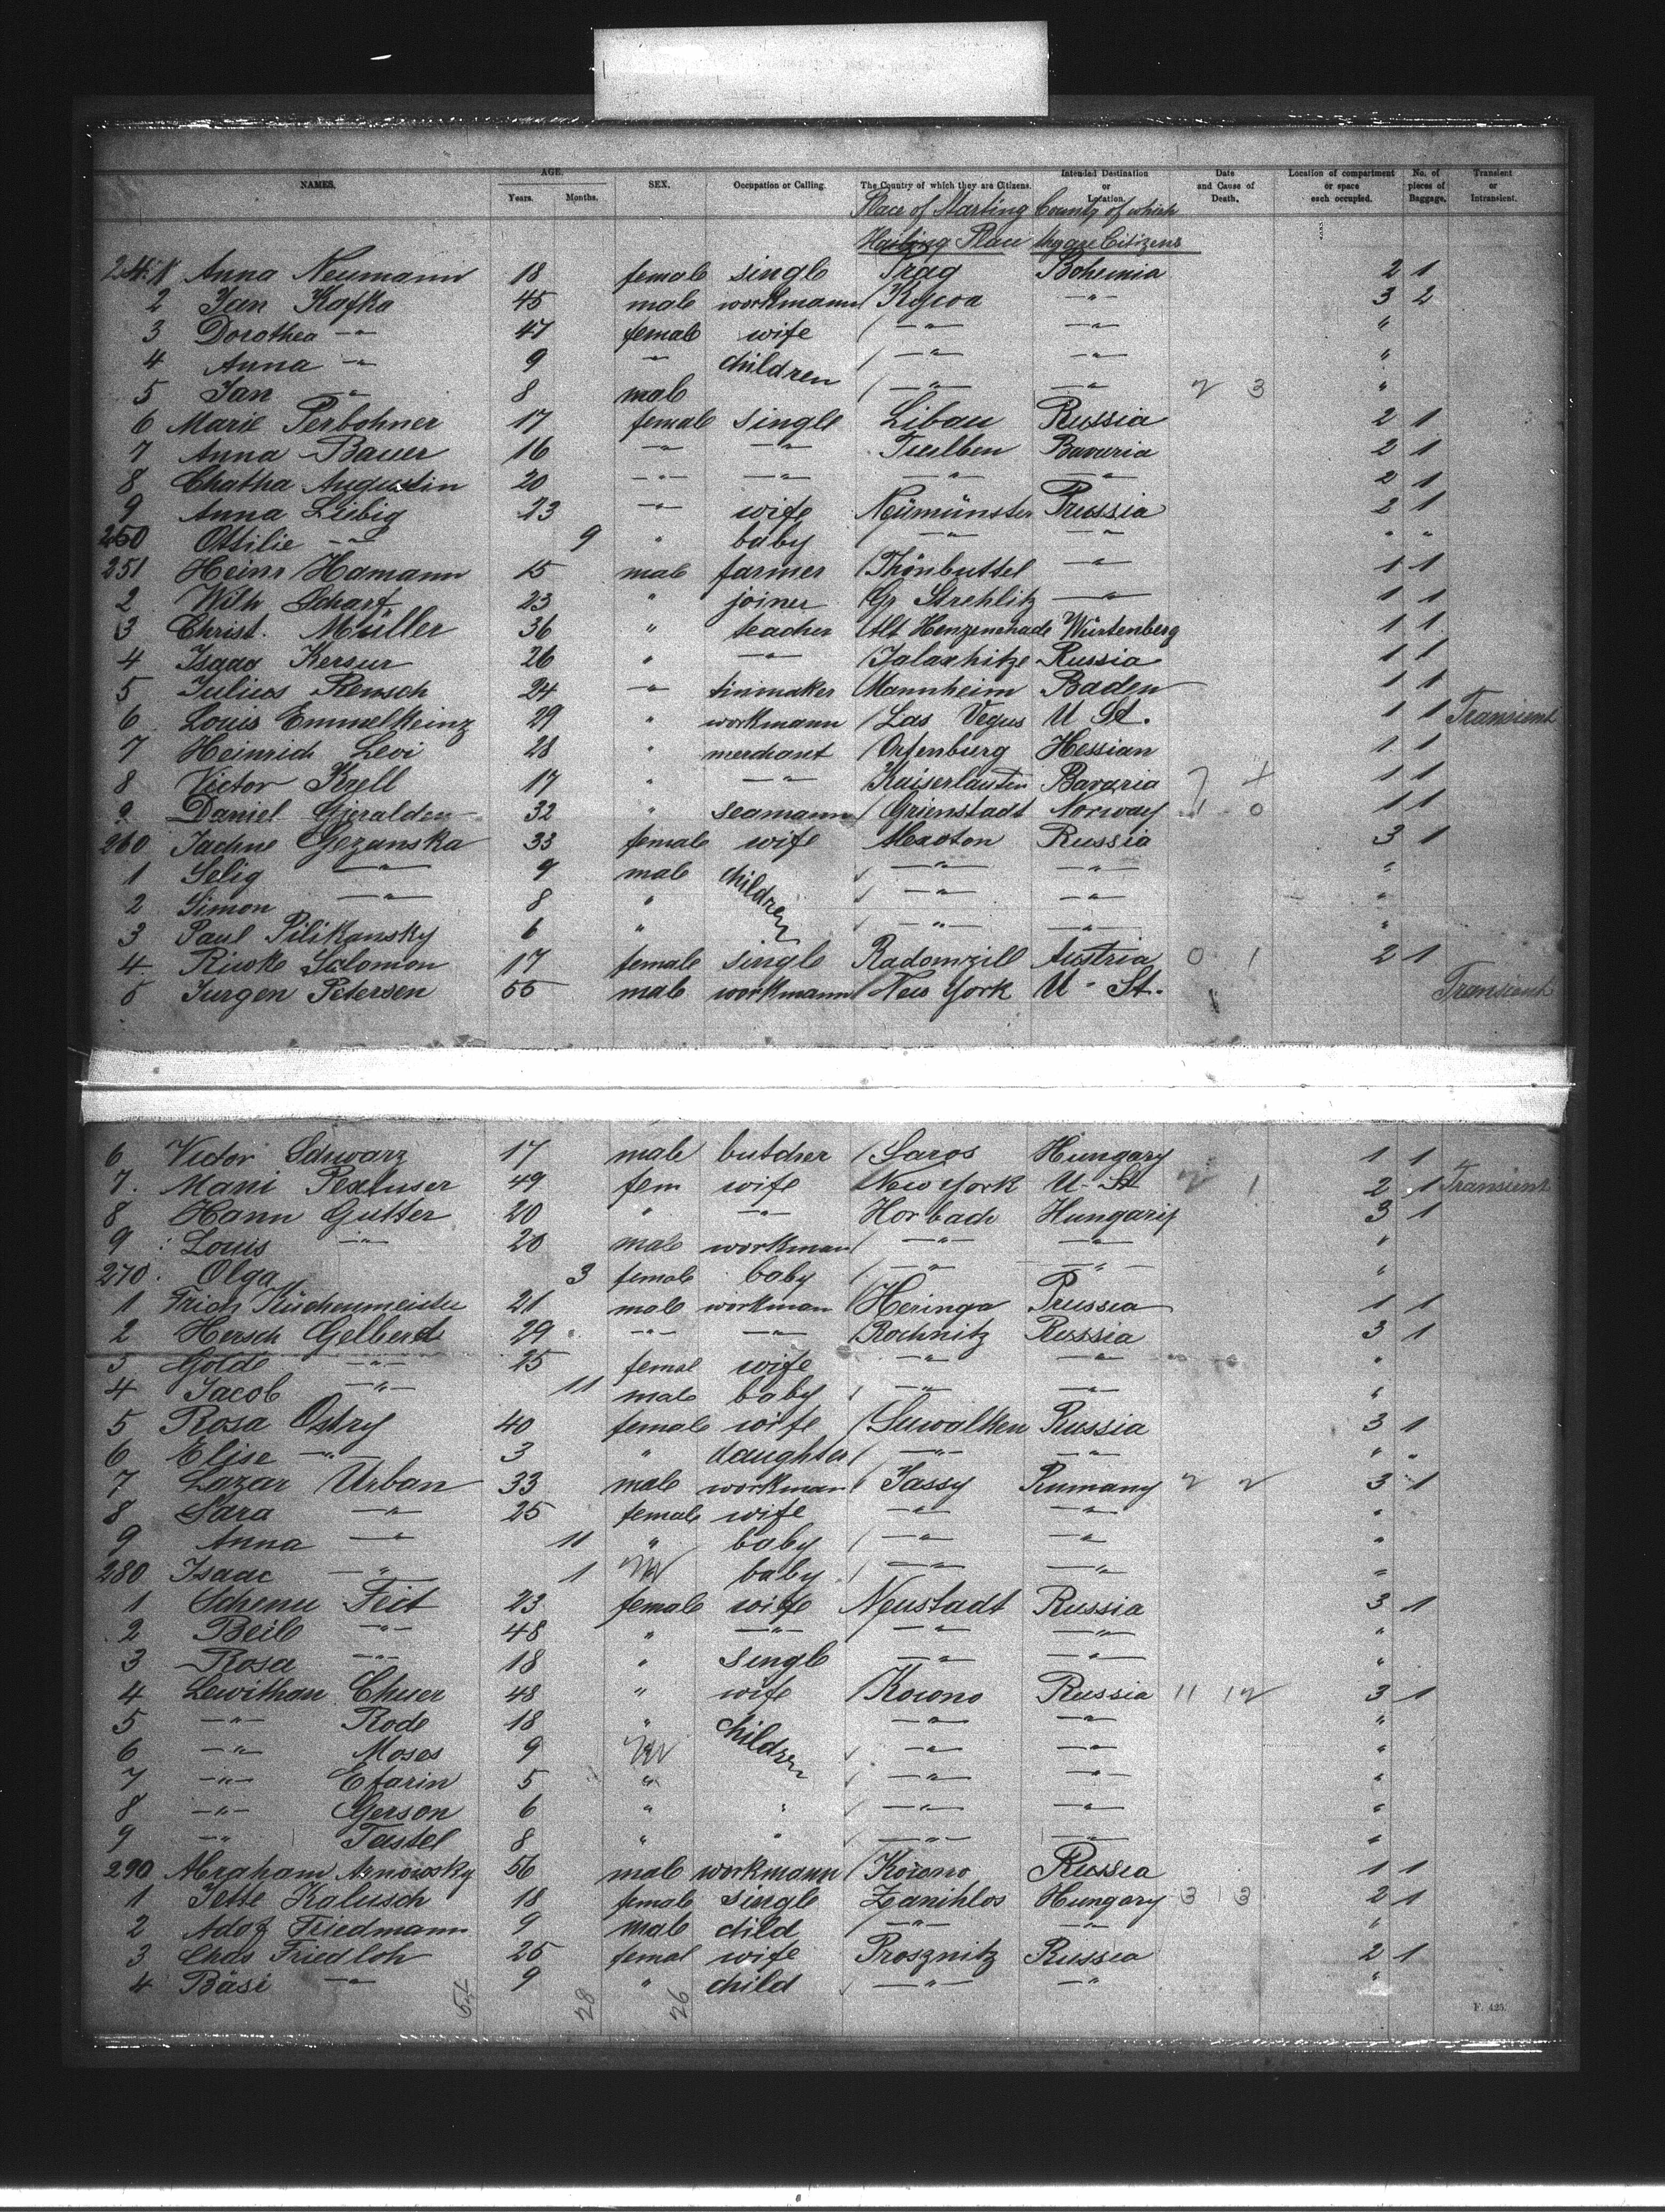 NAMES. AGE. Years. Months. SEX. Occupation or Calling. The Country of which they are Citizens. Intended Destination or Location. Date and Cause of Death. Location of compartment or space each occupied. No. of pieces of Baggage. Transient or Intransient.
Place of Starting County of which
Plau they are Citizens
Anna Neumann 18 female single Prag Bohemia 2 1
2 Jan Kafka 45 male workmann -"- 3 2
3 Dorothea -"- 47 female wife -"- -"- "
4 Anna -"- 9 -"- children -"- -"- "
5 Jan -"- 8 male -"- -"- 2 3 "
6 Marie Perbohner 17 female single Libau Russia 2 1
7 Anna Bauer 16 -"- -"- Bavaria 2 1
8 Augustin 20 -"- -"- -"- -"- 2 1
9 Anna Liebig 23 -"- wife Neümünster Prussia 2 1
250 Ottilie -"- 9 " baby -"- -"- " "
251 Heinr Hamann 15 male farmer Thönbuttel -"- 1 1
2 Wilh Scharf 23 " joiner Gr Strehlitz -"- 1 1
3 Christ. Müller 36 " teacher Alt Würtenberg 1 1
4 Isaac Kersur 26 " -"- Russia 1 1
5 Julius Rensch 24 -"- tinmaker Mannheim Baden 1 1
6 Louis Emmelheinz 29 " workmann Las Vegus U St. 1 1 Transient
7 Heinrich Levi 28 " merchant Hessian 1 1
8 Victor Krell 17 " -"- Kaiserlautern Bavaria 1 1
9 Daniel Gjeralden 32 " seamann Grienstadt Norway 0 1 1
260 Jachne Gezanska 33 female wife Russia 3 1
1 Selig -"- 9 male children -"- -"- "
2 Simon -"- 8 " -"- -"- "
3 Paul Pilikansky 6 " -"- -"- "
4 Riwke Salomon 17 female single Radomzill Austria 0 1 2 1
5 Jurgen Petersen 55 male workmann New York U - St. Transient
6 Victor Schwarz 17 male butcher Saros Hungary 1 1
7. Mani 49 fem wife New York U - St 2 1 2 1 Transient
8 Hann Gutter 20 " -"- Horbach Hungary 3 1
9 Louis -"- 20 male workman -"- -"- "
270. Olga 3 female baby -"- -"- "
1 Küchenmeister 21 male workman Heringa Prussia 1 1
2 Hersch Gelberd 29 -"- -"- Rochnitz Russia 3 1
3 Golde -"- 25 femal wife -"- -"- "
4 Jacob -"- 11 male baby -"- -"- "
5 Rosa Ostry 40 female wife Suwalken Russia 3 1
6 Elise -"- 3 " daughter -"- -"- " "
7 Lazar Urban 33 male workman Jassy Rumany 2 2 3 1
8 Sara -"- 25 female wife -"- -"- "
9 Anna -"- 11 " baby -"- -"- "
280 Isaac -"- 1 baby -"- -"- "
1 Feit 23 female wife Neustadt Russia 3 1
2 Beile -"- 48 " -"- -"- -"- "
3 Rosa -"- 18 " single -"- -"- "
4 Lewithan 48 " wife Kowno Russia 11 12 3 1
5 -"- Rode 18 " children -"- -"- "
6 -"- Moses 9 -"- -"- "
7 -"- Efarin 5 " -"- -"- "
8 -"- Gerson 6 " -"- -"- "
9 -"- Tastel 8 " " -"- -"- "
290 Abraham Arnowsky 56 male workmann Kowno Russia 1 1
1 Jette Kalusch 18 female single Zanihlos Hungary 3 13 2 1
2 Adof Friedmann 9 male child -"- -"- "
3 Friedloh 25 femal wife Prosznitz Russia 2 1
4 Bäsi -"- 9 " child -"- -"- "
54 28 26
F. 425.